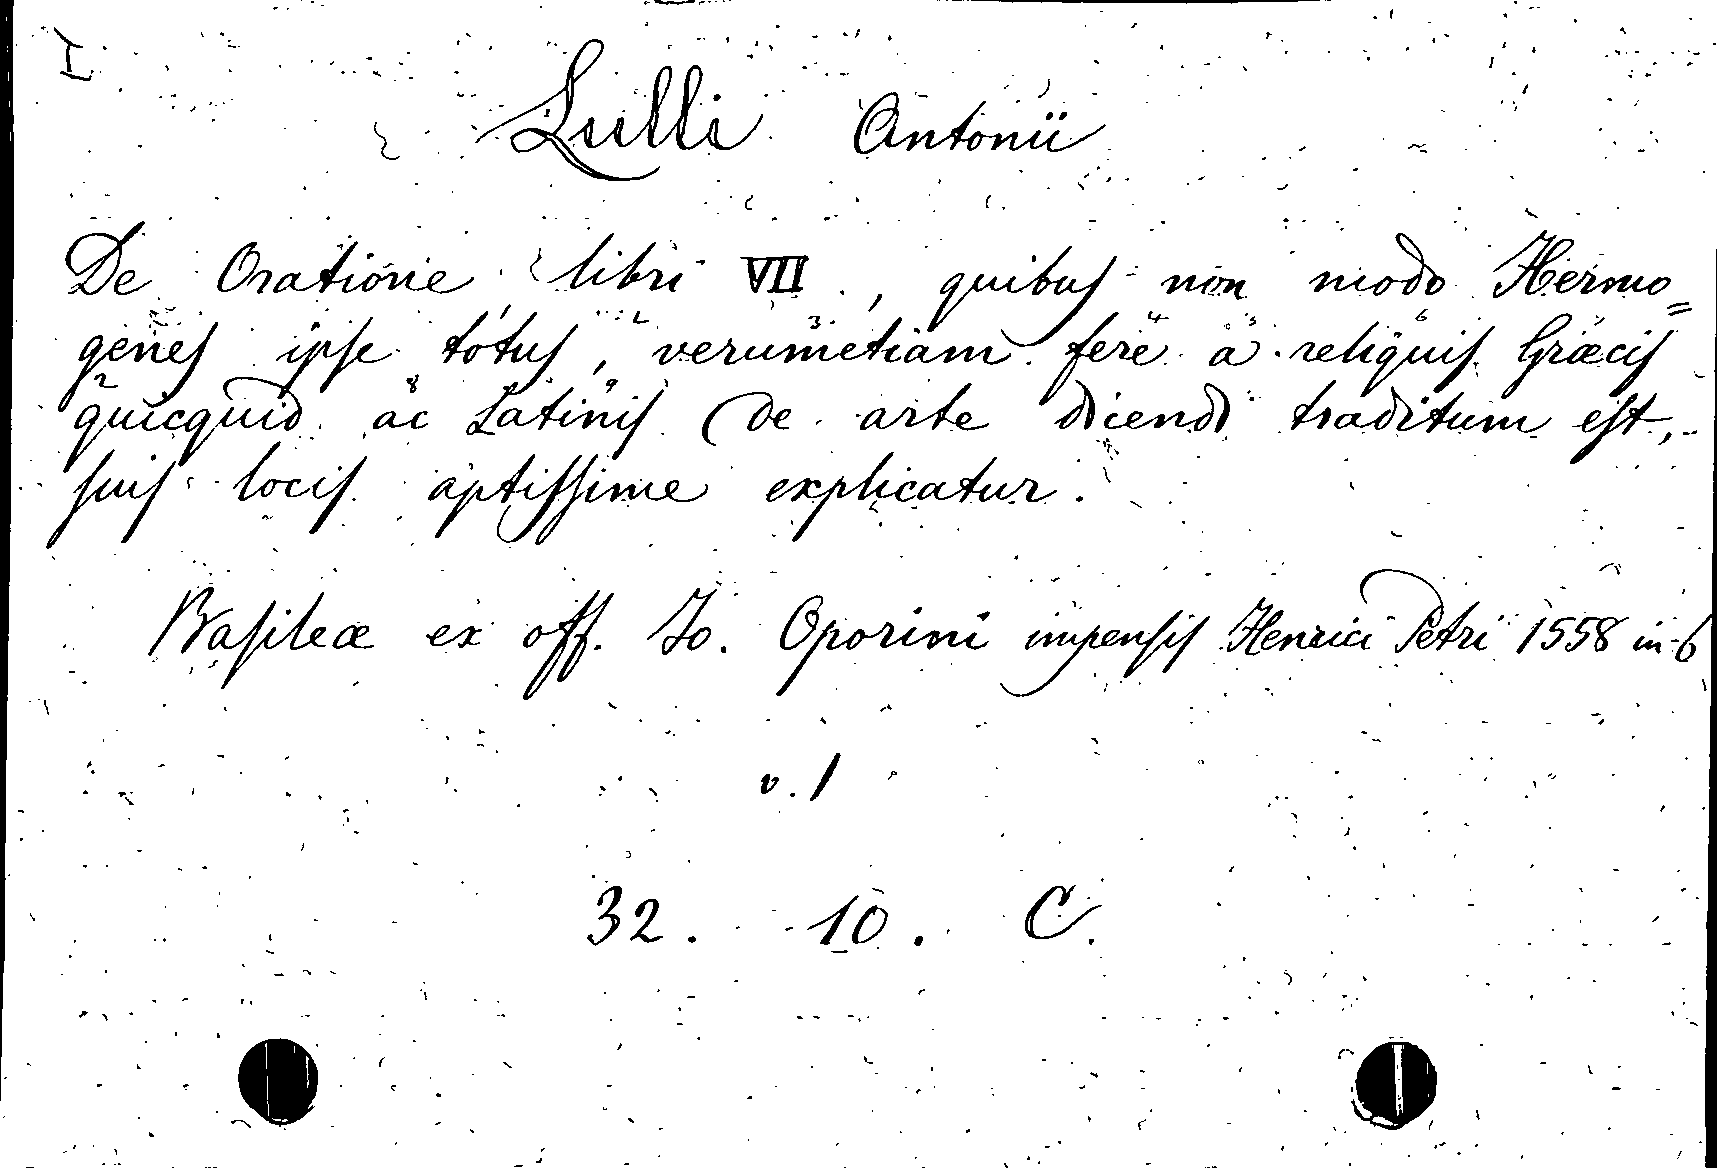 I
Lulli Antonii
De Oratione libri VII., quibus non modo Hermo=
genes ipse totus, verumetiam fere a reliquis Græcis
quicquid ac Latinis de arte dicendi traditum est,
suis locis aptissime explicatur.
Basileæ ex off. Jo. Oporini impensis Henrici Petri 1558 in-6
v. 1
32. 10. C.